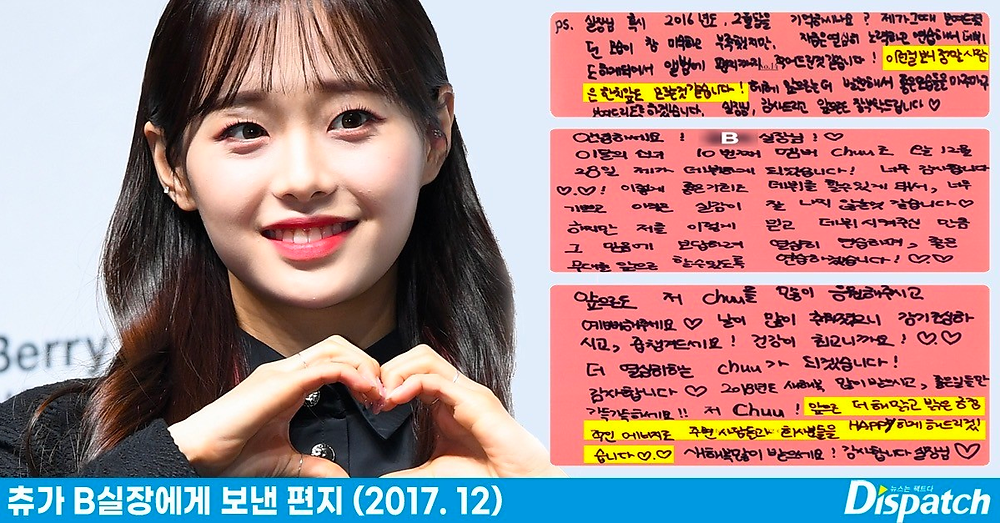 ps. 실장님 혹시 2016년도, 2월달을 기억하시나요? 제가 그때 보여드렸
던 모습이 참 미숙하고 부족했지만,
이런걸 보니 정말 사람
은 한치앞도 모르는것 같습니다!
실장님, 감사드리고 앞으로 잘부탁드립니다♡
안녕하세요! B 실장님!♡
이달의 소녀 10번째 멤버 Chuu로 12월
28일 제가 데뷔하게 되었습니다! 너무 감사합니다
♡.♡! 이렇게 좋은 데뷔를 할수있게 되서, 너무
기쁘고 아직은 실감이 잘 나지 않는것 같습니다♡
하지만 저를 이렇게 믿고 데뷔시켜주신 만큼
그 믿음에 보답하려 열심히 연습하며, 좋은
무대를 앞으로 할수있도록 연습하겠습니다! ♡.♡
앞으로도 저 Chuu를 많이 응원해주시고
예뻐해주세요♡ 날이 많이 추워졌으니 감기조심하
시고, 건강이 최고니까요! ♡♡
더 열심히하는 Chuu가 되겠습니다!
감사합니다♡ 2018년도 새해복 많이받으시고, 좋은일들만
가득가득하세요!! 저 Chuu! 앞으로 더 해맑고 밝은 긍정
적인 에너지로 주변 사람들과 회사분들을 HAPPY하게 해드리겠
습니다♡.♡ 새해복많이 받으세요! 감사합니다 실장님♡
Berry
츄가 B실장에게 보낸 편지 (2017. 12)
뉴스는 팩트다
Dispatch